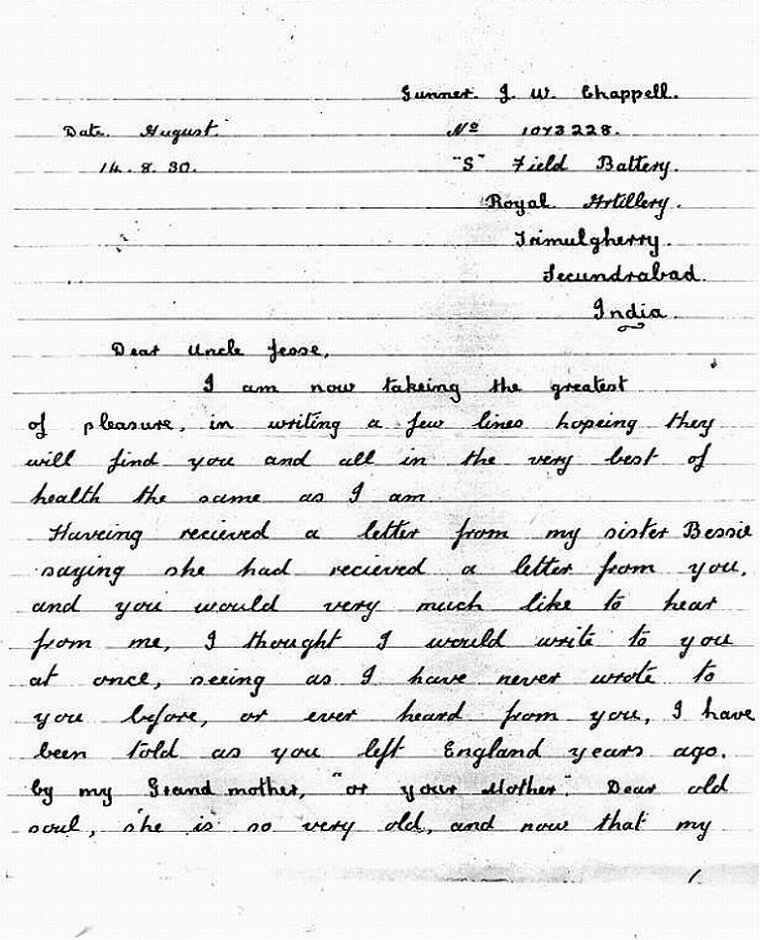 Gunner. J. W. Chappell.
Date. August. Nº 1073228.
14. 8. 30. "S" Field Battery.
Royal Artillery.
Trimulgherry.
Secundrabad.
India.
Dear Uncle Jesse,
I am now takeing the greatest
of pleasure, in writing a few lines hopeing they
will find you and all in the very best of
health the same as I am
Haveing recieved a letter from my sister Bessie
saying she had recieved a letter from you,
and you would very much like to hear
from me, I thought I would write to you
at once, seeing as I have never wrote to
you before, or ever heard from you, I have
been told as you left England years ago.
by my Grandmother, "or your Mother". Dear old
soul, she is so very old, and now that my
1.